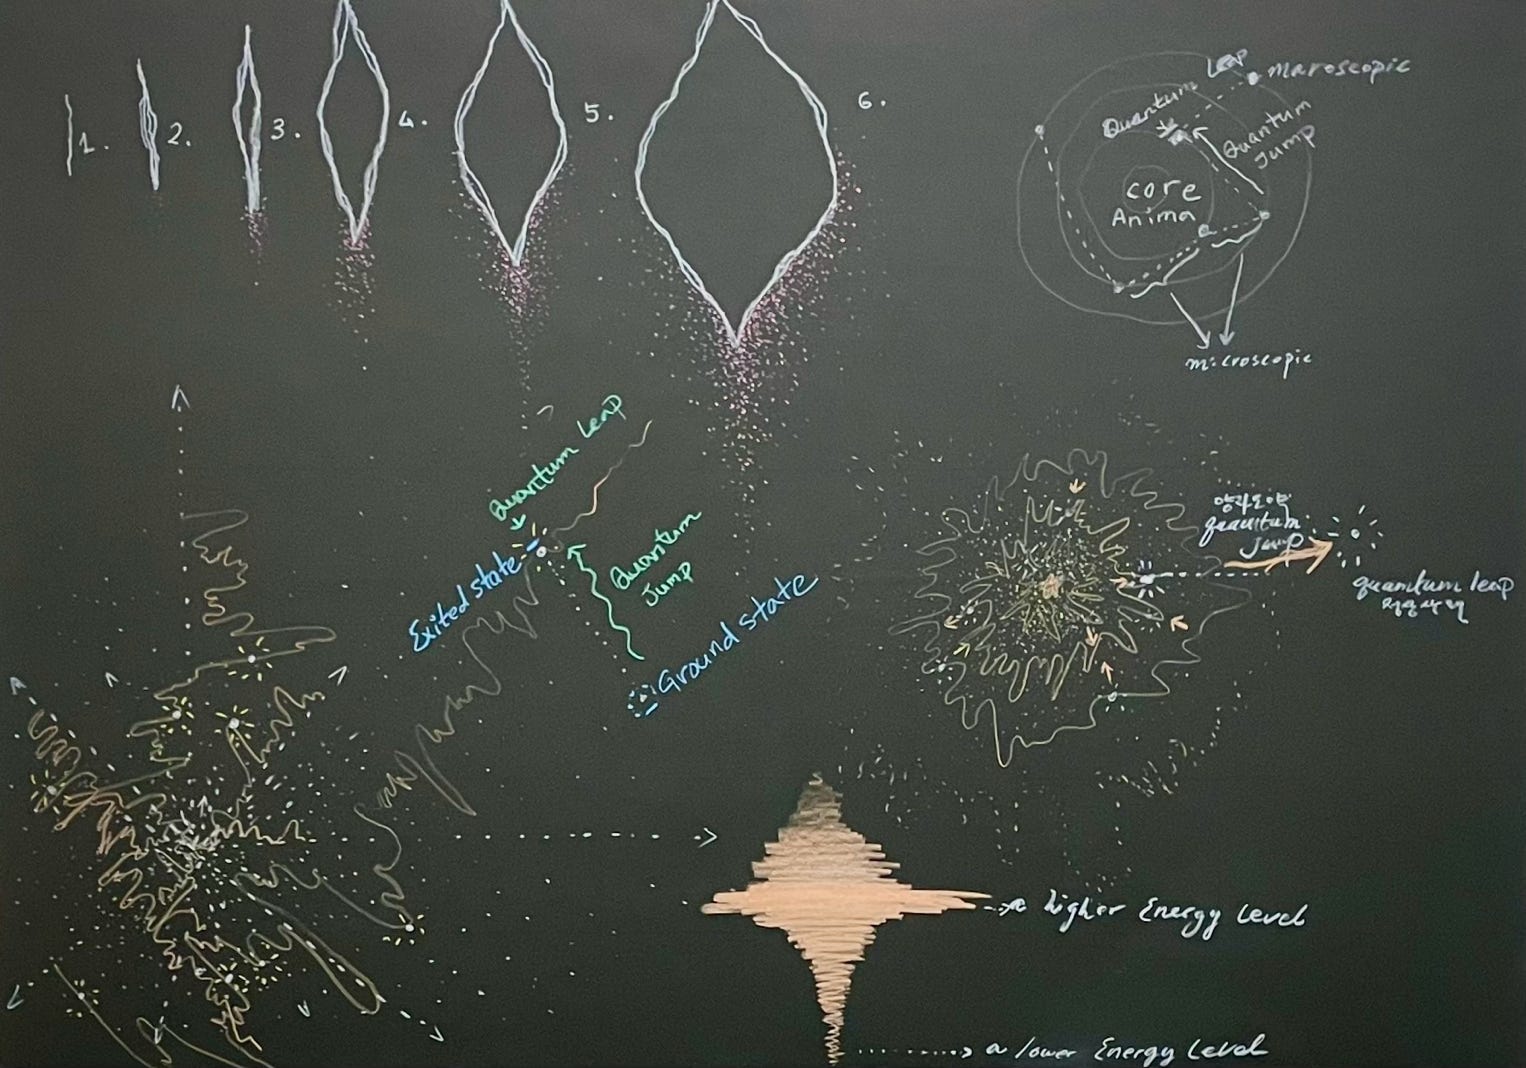 1.
2.
3.
4.
5.
6.
Quantum Leap
maroscopic
Quantum
Jump
core
Anima
microscopic
Quantum Leap
Exited state
Quantum
Jump
Ground state
양자도약
quamtum
Jump
quamtum leap
higher Energy Level
a lower Energy Level